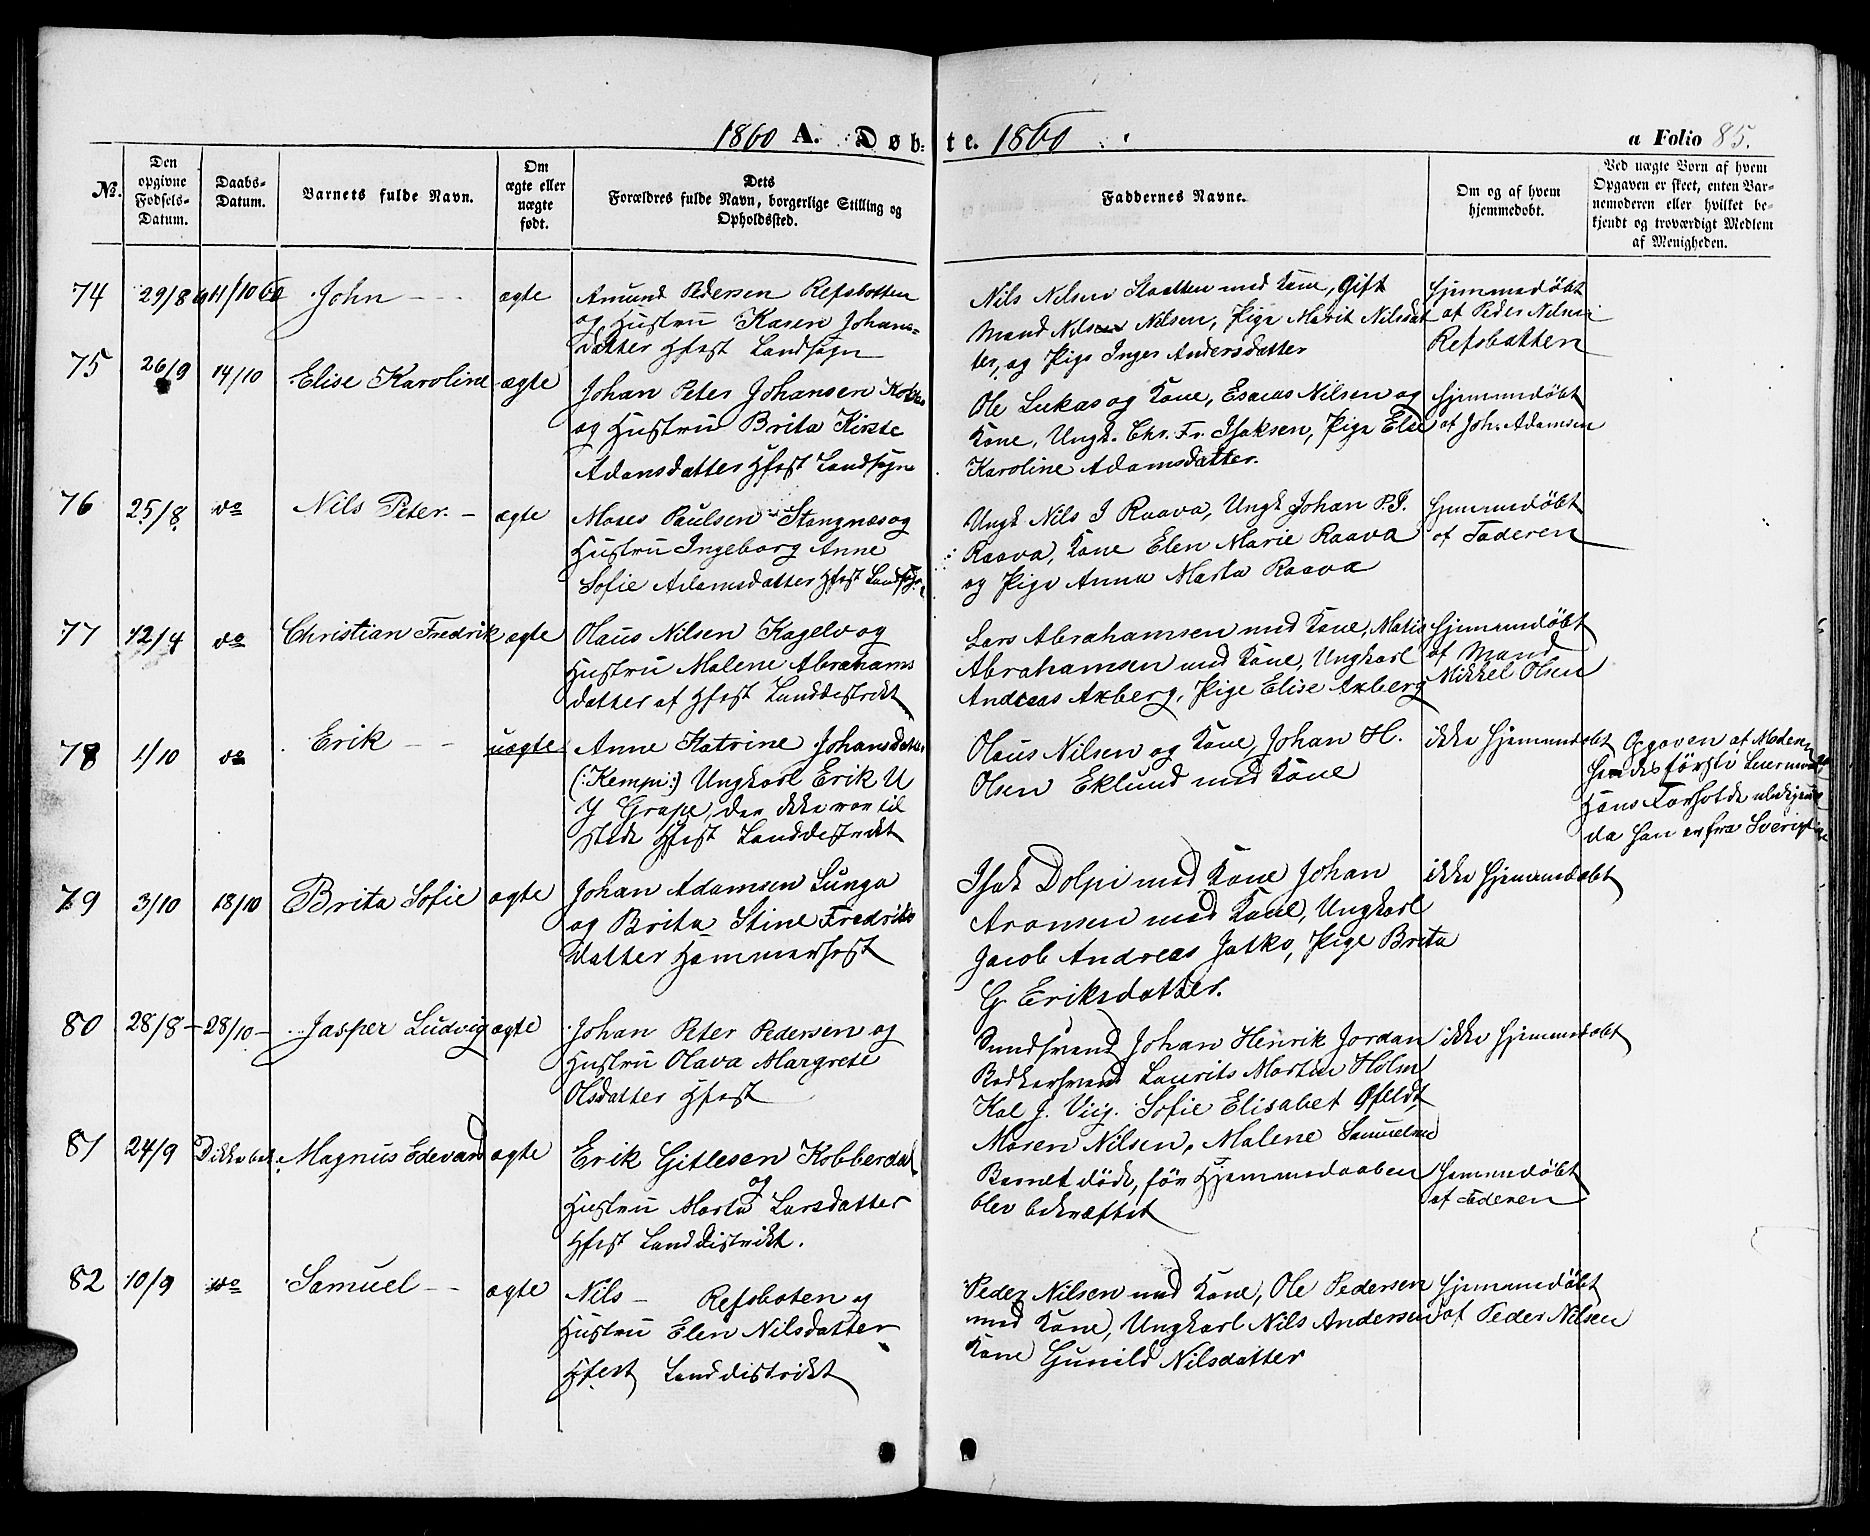 1860 A. Døb-
te. 1860
a Folio 85.
№.
Den opgivne Fødsels-Datum.
Daabs-Datum.
Barnets fulde Navn.
Om ægte eller uægte født.
Dets Forældres fulde Navn, borgerlige Stilling og Opholdssted.
Faddernes Navne.
Om og af hvem hjemmedøbt.
Ved uægte Børn af hvem Opgaven er skeet, enten Barnemoderen eller hvilket bekjendt og troværdigt Medlem af Menigheden.
74 29/8 11/10 60 John ægte
Amund Pedersen Refsbotten
og Hustru Karen Johans-
datter Hfest Landsogn
Nils Nilsen Slaatten med Kone, Gift
Mand Nils Nilsen, Pige Marit Nilsdat
ter, og Pige Inger Andersdatter
Hjemmedøbt
af Peder Nilsen
Refsbotten
75 26/9 14/10 Elise Karoline ægte
Johan Peter Johansen
og Hustru Brita Kirste
Adamsdatter Hfest Landsogn
Ole Lukas og Kone, Esaias Nilsen og
Kone, Ungk. Chr. Fr. Isaksen, Pige Else
Karoline Adamsdatter.
Hjemmedøbt
af Joh. Adamsen
76 25/8 do Nils Peter. ægte
Moses Paulsen Stangnes og
Hustru Ingeborg Anne
Sofie Adamsdatter Hfest Landsogn
Ungk Nils I Raava, Ungk Johan P.J.
Raava, Kone Elen Marie Raava
og Pige Anna Marta Raava
Hjemmedøbt
af Faderen
77 12/4 do Christian Fredrik ægte
Olaus Nilsen Kagelv og
Hustru Malene Abrahams
datter af Hfest Landdestrikt
Lars Abrahamsen med Kone, Matis
Abrahamsen med Kone, Ungkarl
Andreas Axberg, Pige Elise Axberg
Hjemmedøbt
af Mand
Mikkel Olsen
78 1/10 do Erik uægte
Anne Katrine Johansdatter
(:Kempi:) Ungkarl Erik U
J Grape, der ikke var til
stede Hfest Landdestrikt
Olaus Nilsen og Kone, Johan H.
Olsen Eklund med Kone
ikke Hjemmedøbt
Opgaven af Moderen
hendes første Leiermaal,
Hans Forhold ubekjendt
da han er fra Sverige
79 3/10 18/10 Brita Sofie ægte
Johan Adamsen Lunga
og Brita Stine Fredriks
datter Hammerfest
Isak Dolpi med Kone Johan
Aronsen med Kone, Ungkarl
Jacob Andreas Jatko, Pige Brita
G. Eriksdatter.
ikke Hjemmedøbt
80 28/8 28/10 Jasper Ludvig ægte
Johan Peter Pedersen og
Hustru Olava Margrete
Olsdatter Hfest
Smedsvend Johan Henrik Jordan
Bødkersvend Laurits Martin Holm
Kal J. Viig. Sofie Elisabet Qfeldt,
Maren Nilsen, Malene Samuelsen
ikke Hjemmedøbt
81 24/9 Magnus Edevard ægte
Erik Gitlesen Kobberdal
og
Hustru Marta Larsdatter
Hfest Landdistrikt.
Barnet døde, før Hjemmedaaben
blev bekræftet
Hjemmedøbt
af Faderen
82 10/9 do Samuel ægte
Nils Refsboten og
Hustru Elen Nilsdatter
Hfest Landdistrikt
Peder Nilsen med Kone, Ole Pedersen
med Kone, Ungkarl Nils Andersen
Kone Gunild Nilsdatter
Hjemmedøbt
af Peder Nilsen